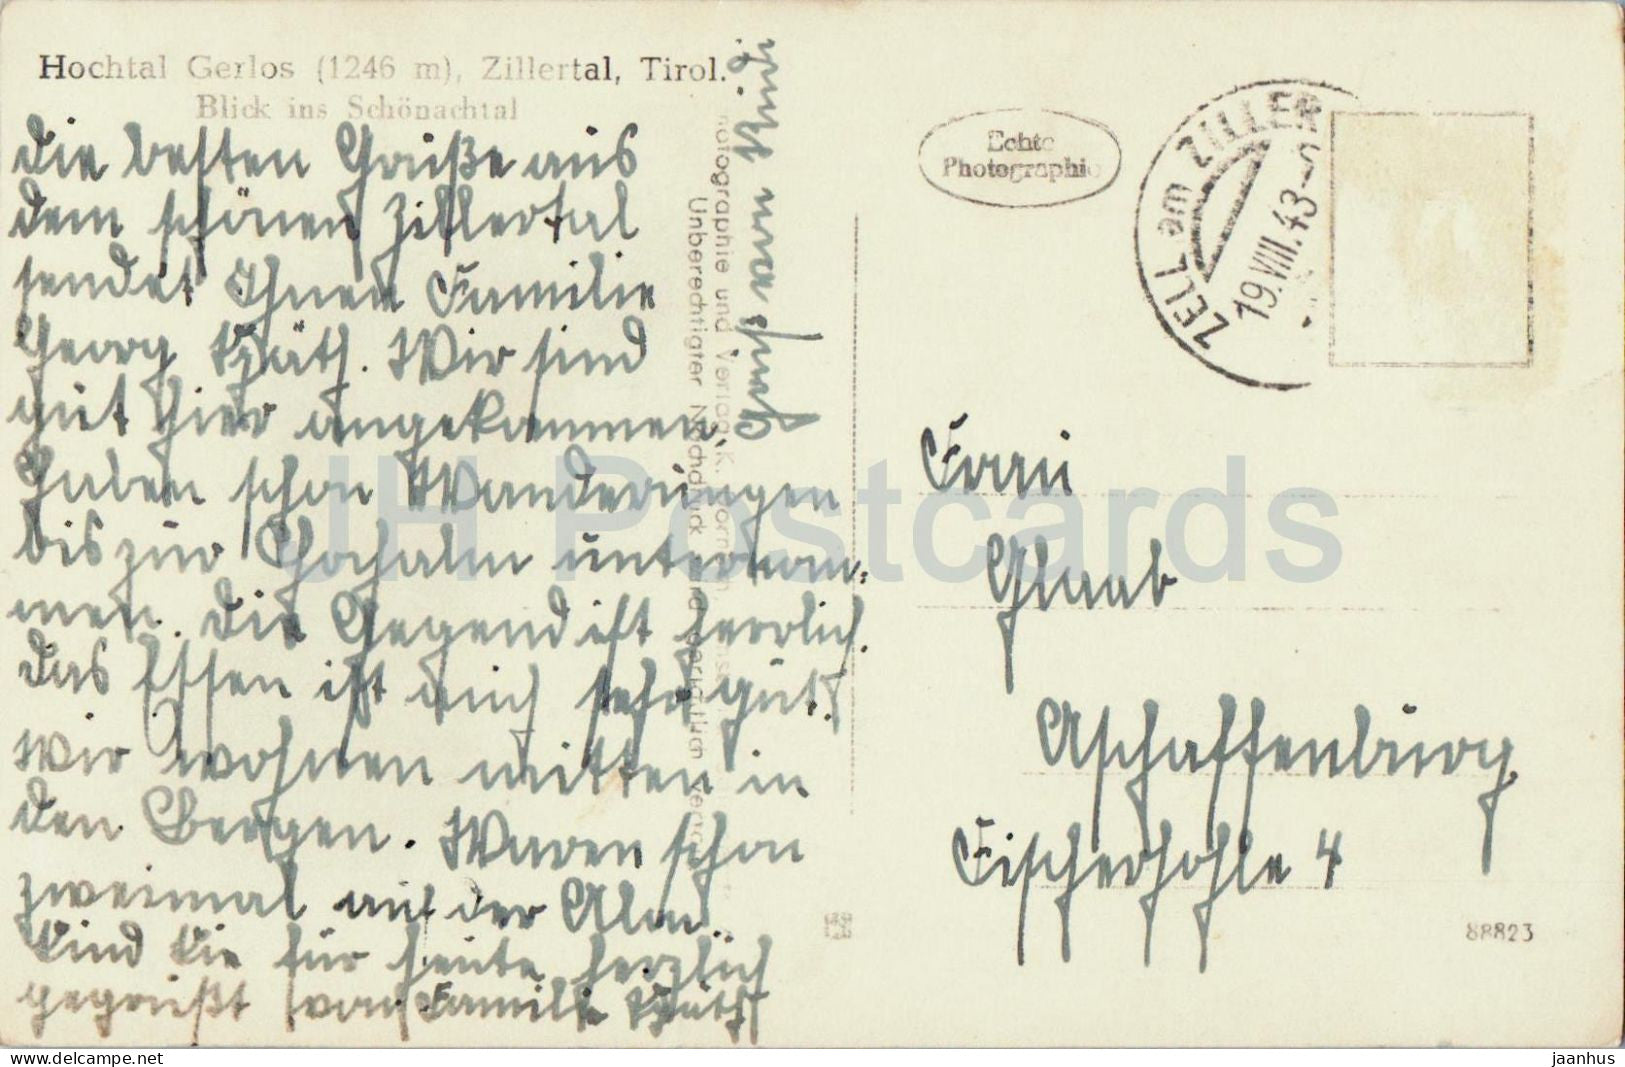 Hochtal Gerlos (1246 m), Zillertal, Tirol.
Blick ins Schönachtal
die besten Grüße aus
dem schönen Zillertal
sendet Ihnen Familie
Georg Späth. Wir sind
gut hier angekommen,
haben schon Wanderungen
bis zur Hochalm unternom-
men. Die Gegend ist herrlich.
das Essen ist auch sehr gut.
Wir wohnen mitten in
den Bergen. Waren schon
zweimal auf der Alm.
Sind Sie für heute herzlich
gegrüßt von Familie Späth
Gruß von
Photographie und Verlag K.
Unberechtigter Nachdruck wird gerichtlich
Echte
Photographie
ZELL am ZILLER
19.VIII.43-
Frau
Glaab
Aschaffenburg
Fischerhohle 4
88823
JH Postcards
https://www.delcampe.net
jaanhus